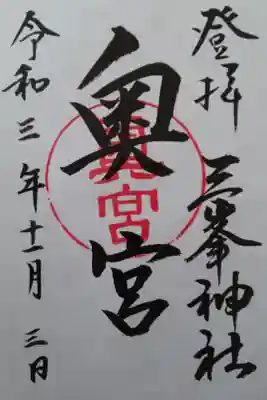 登拝 三峯神社
奥宮
奥宮
令和三年十一月三日